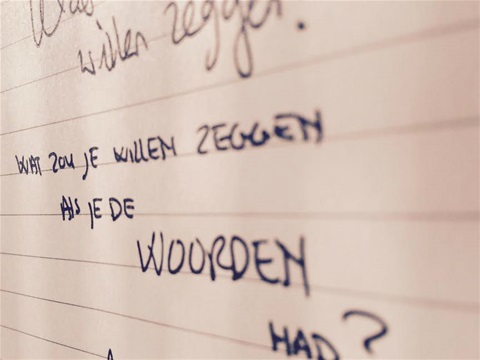 willen zeggen.
WAT ZOU JE WILLEN ZEGGEN
ALS JE DE
WOORDEN
HAD?